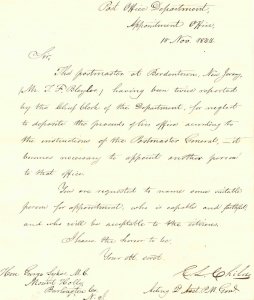 Post Office Department,
Appointment Office,
18 Nov.
Sir,
The postmaster at Bordentown, New Jersey,
(Mr. T. F.) having been twice reported
by the Chief Clerk of the Department, for neglect
to deposite the proceeds of his office according to
the instructions of the Postmaster General, it
becomes necessary to appoint another person
to that office.
You are requested to name some suitable
person for appointment, who is capable and faithful,
and who will be acceptable to the citizens.
I have the honor to be,
Your Ob. Servt.
Hon. M.C.
Mount Holly
Burlington Co.
N. J.
Acting Asst. P. M. Genl.